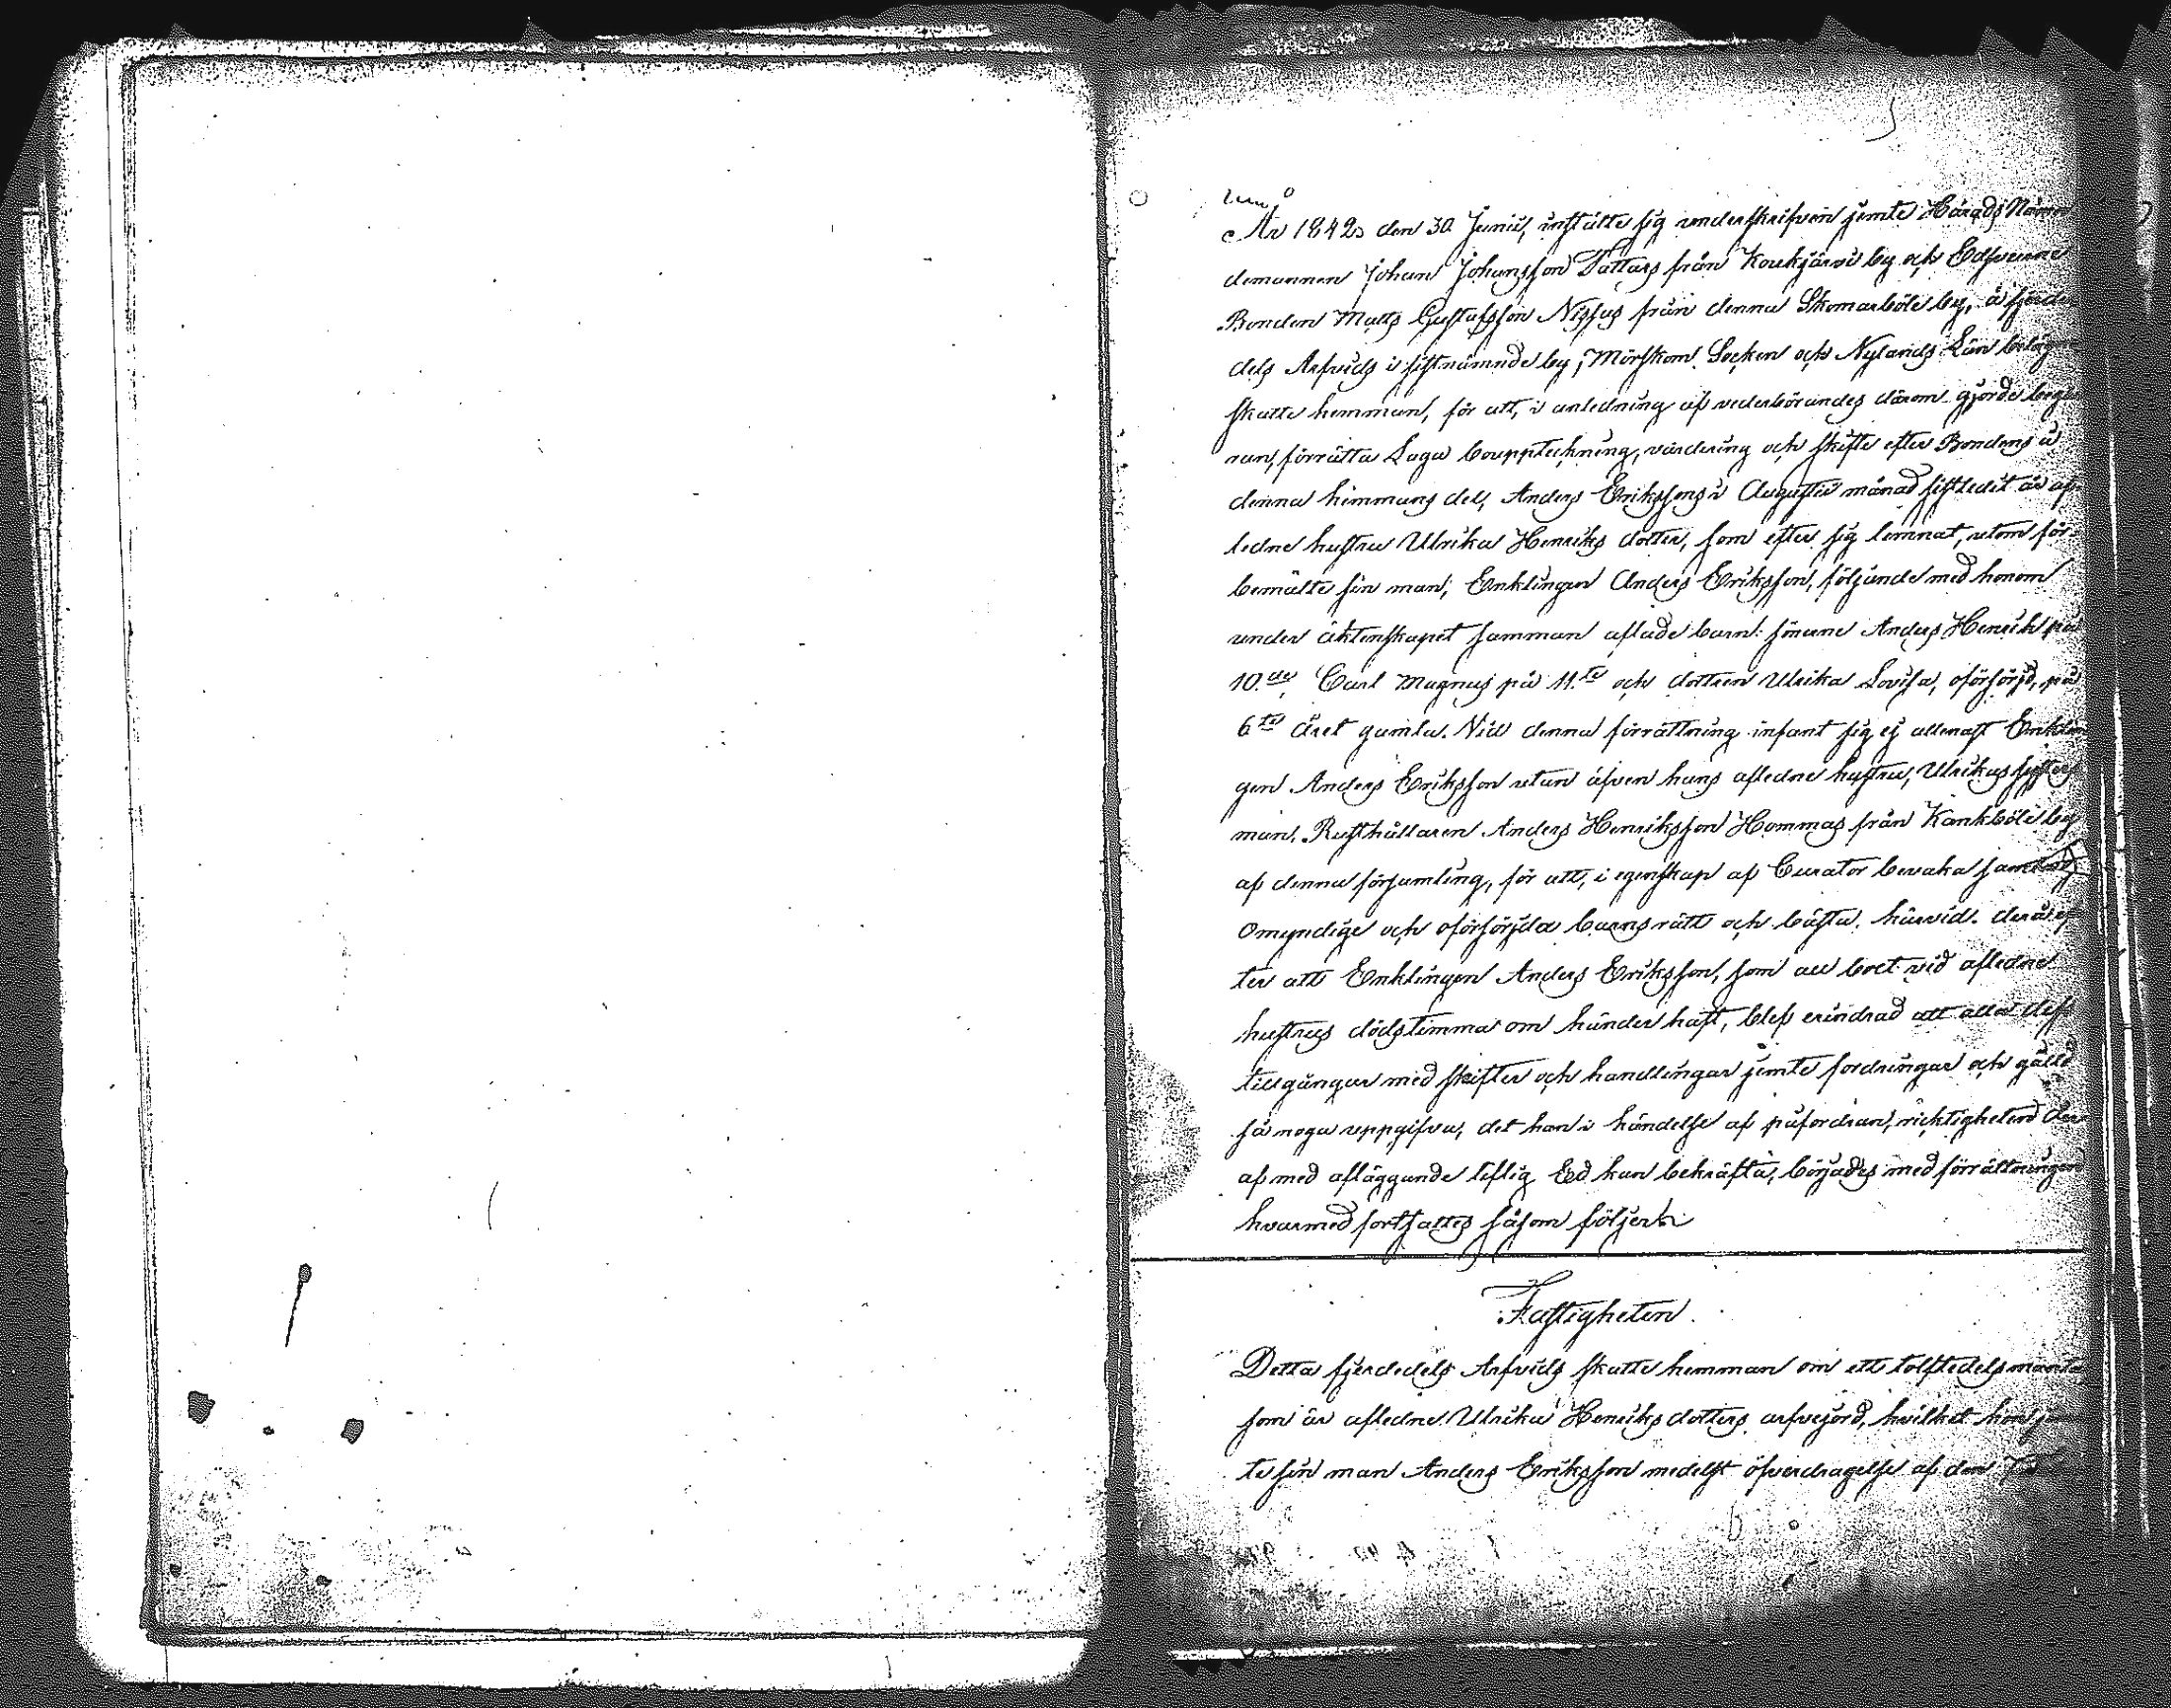 År 1842 den 30 Junii, instälte sig underskrifven jemte Härads Näm
demannen Johan Johansson Pattars från Koukjärvi by och Edsvurne
Bonden Matts Gustafsson Nissus från denna Skomarböle by, å fjerde
dels Arfvids i sistnämnde by, Mörskom Socken och Nylands Län belägne
skatte hemman, för att, i anledning af vederbörandes därom gjorde begä
ran, förrätta Laga bouppteckning, värdering och skifte efter Bondens å
denna hemmans del, Anders Erikssons i Augusti månad sistledit år af
ledne hustru Ulrika Henriks dotter, som efter sig lemnat, utom för
bemälte sin man, Enklingen Anders Eriksson, följande med honom
under äktenskapet samman aflade barn: sönerne Anders Henrik på
10.de, Carl Magnus på 11.te och dottren Ulrika Lovisa, oförsörjd, på
6te året gamla. Vid denna förrättning infant sig ej allenast Enklin
gen Anders Eriksson utan äfven hans afledne hustru, Ulrikas systers
man, Rusthållaren Anders Henriksson Hommas från Kankböle by
af denna församling, för att, i egenskap af Curator bevaka
Omyndige och oförsörjda barns rätt och bästa härvid. derå ef
ter att Enklingen Anders Eriksson, som all boet vid afledne
hustrus dödstimma om händer haft, blef erindrad att alla dess
tillgångar med skifter och handlingar jemte fordringar och gäld
så noga uppgifva, det han i händelse af påfordran, ricktigheten der
af med afläggande liflig Ed kan bekräfta, börjades med förrättningen
hvarmed fortsattes såsom följer
Fastigheten
Detta fjerdedels Arfvids skatte hemman om ett tolftedels manta
som är afledne Ulrika Henriks dotters arfvejord, hvilket hon jem
te sin man Anders Eriksson medelst öfverdragelse af den